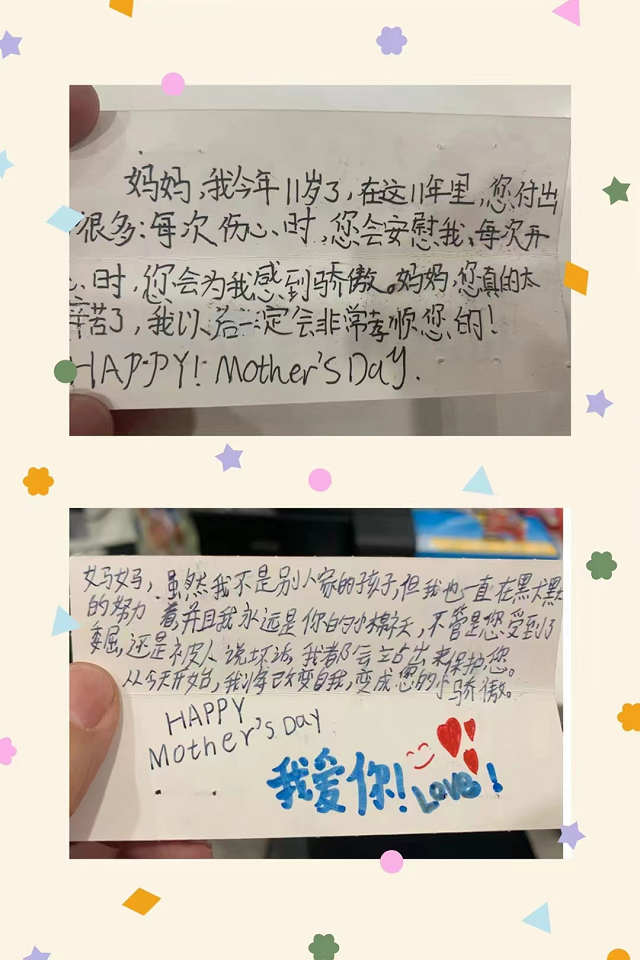 妈妈,我今年11岁了,在这11年里,您付出
很多:每次伤心时,您会安慰我,每次开
心时,您会为我感到骄傲。妈妈,您真的太
辛苦了,我以后一定会非常孝顺您的!
HAPPY! Mother's Day.
妈妈,虽然我不是别人家的孩子,但我也一直在黑大黑
的努力着,并且我永远是你的小棉袄,不管是您受到了
委屈,还是被人说坏话,我都会站出来保护您。
从今天开始,我将改变自我,变成您的小骄傲。
HAPPY
Mother's Day
我爱你!
Love!